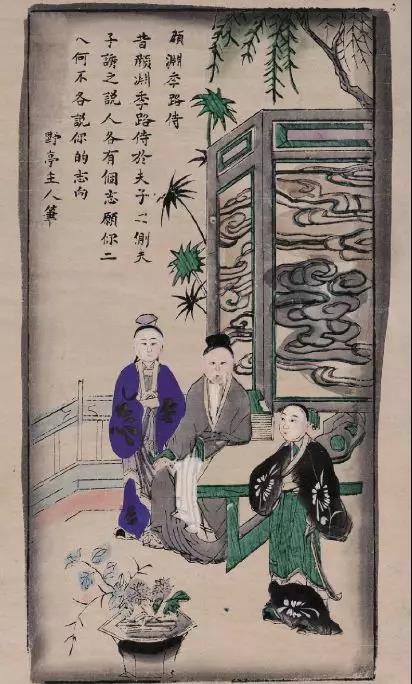 顔淵季路侍
昔顔淵季路侍於夫子之側夫
子謂之説人各有個志願你二
人何不各説你的志向
野亭主人筆